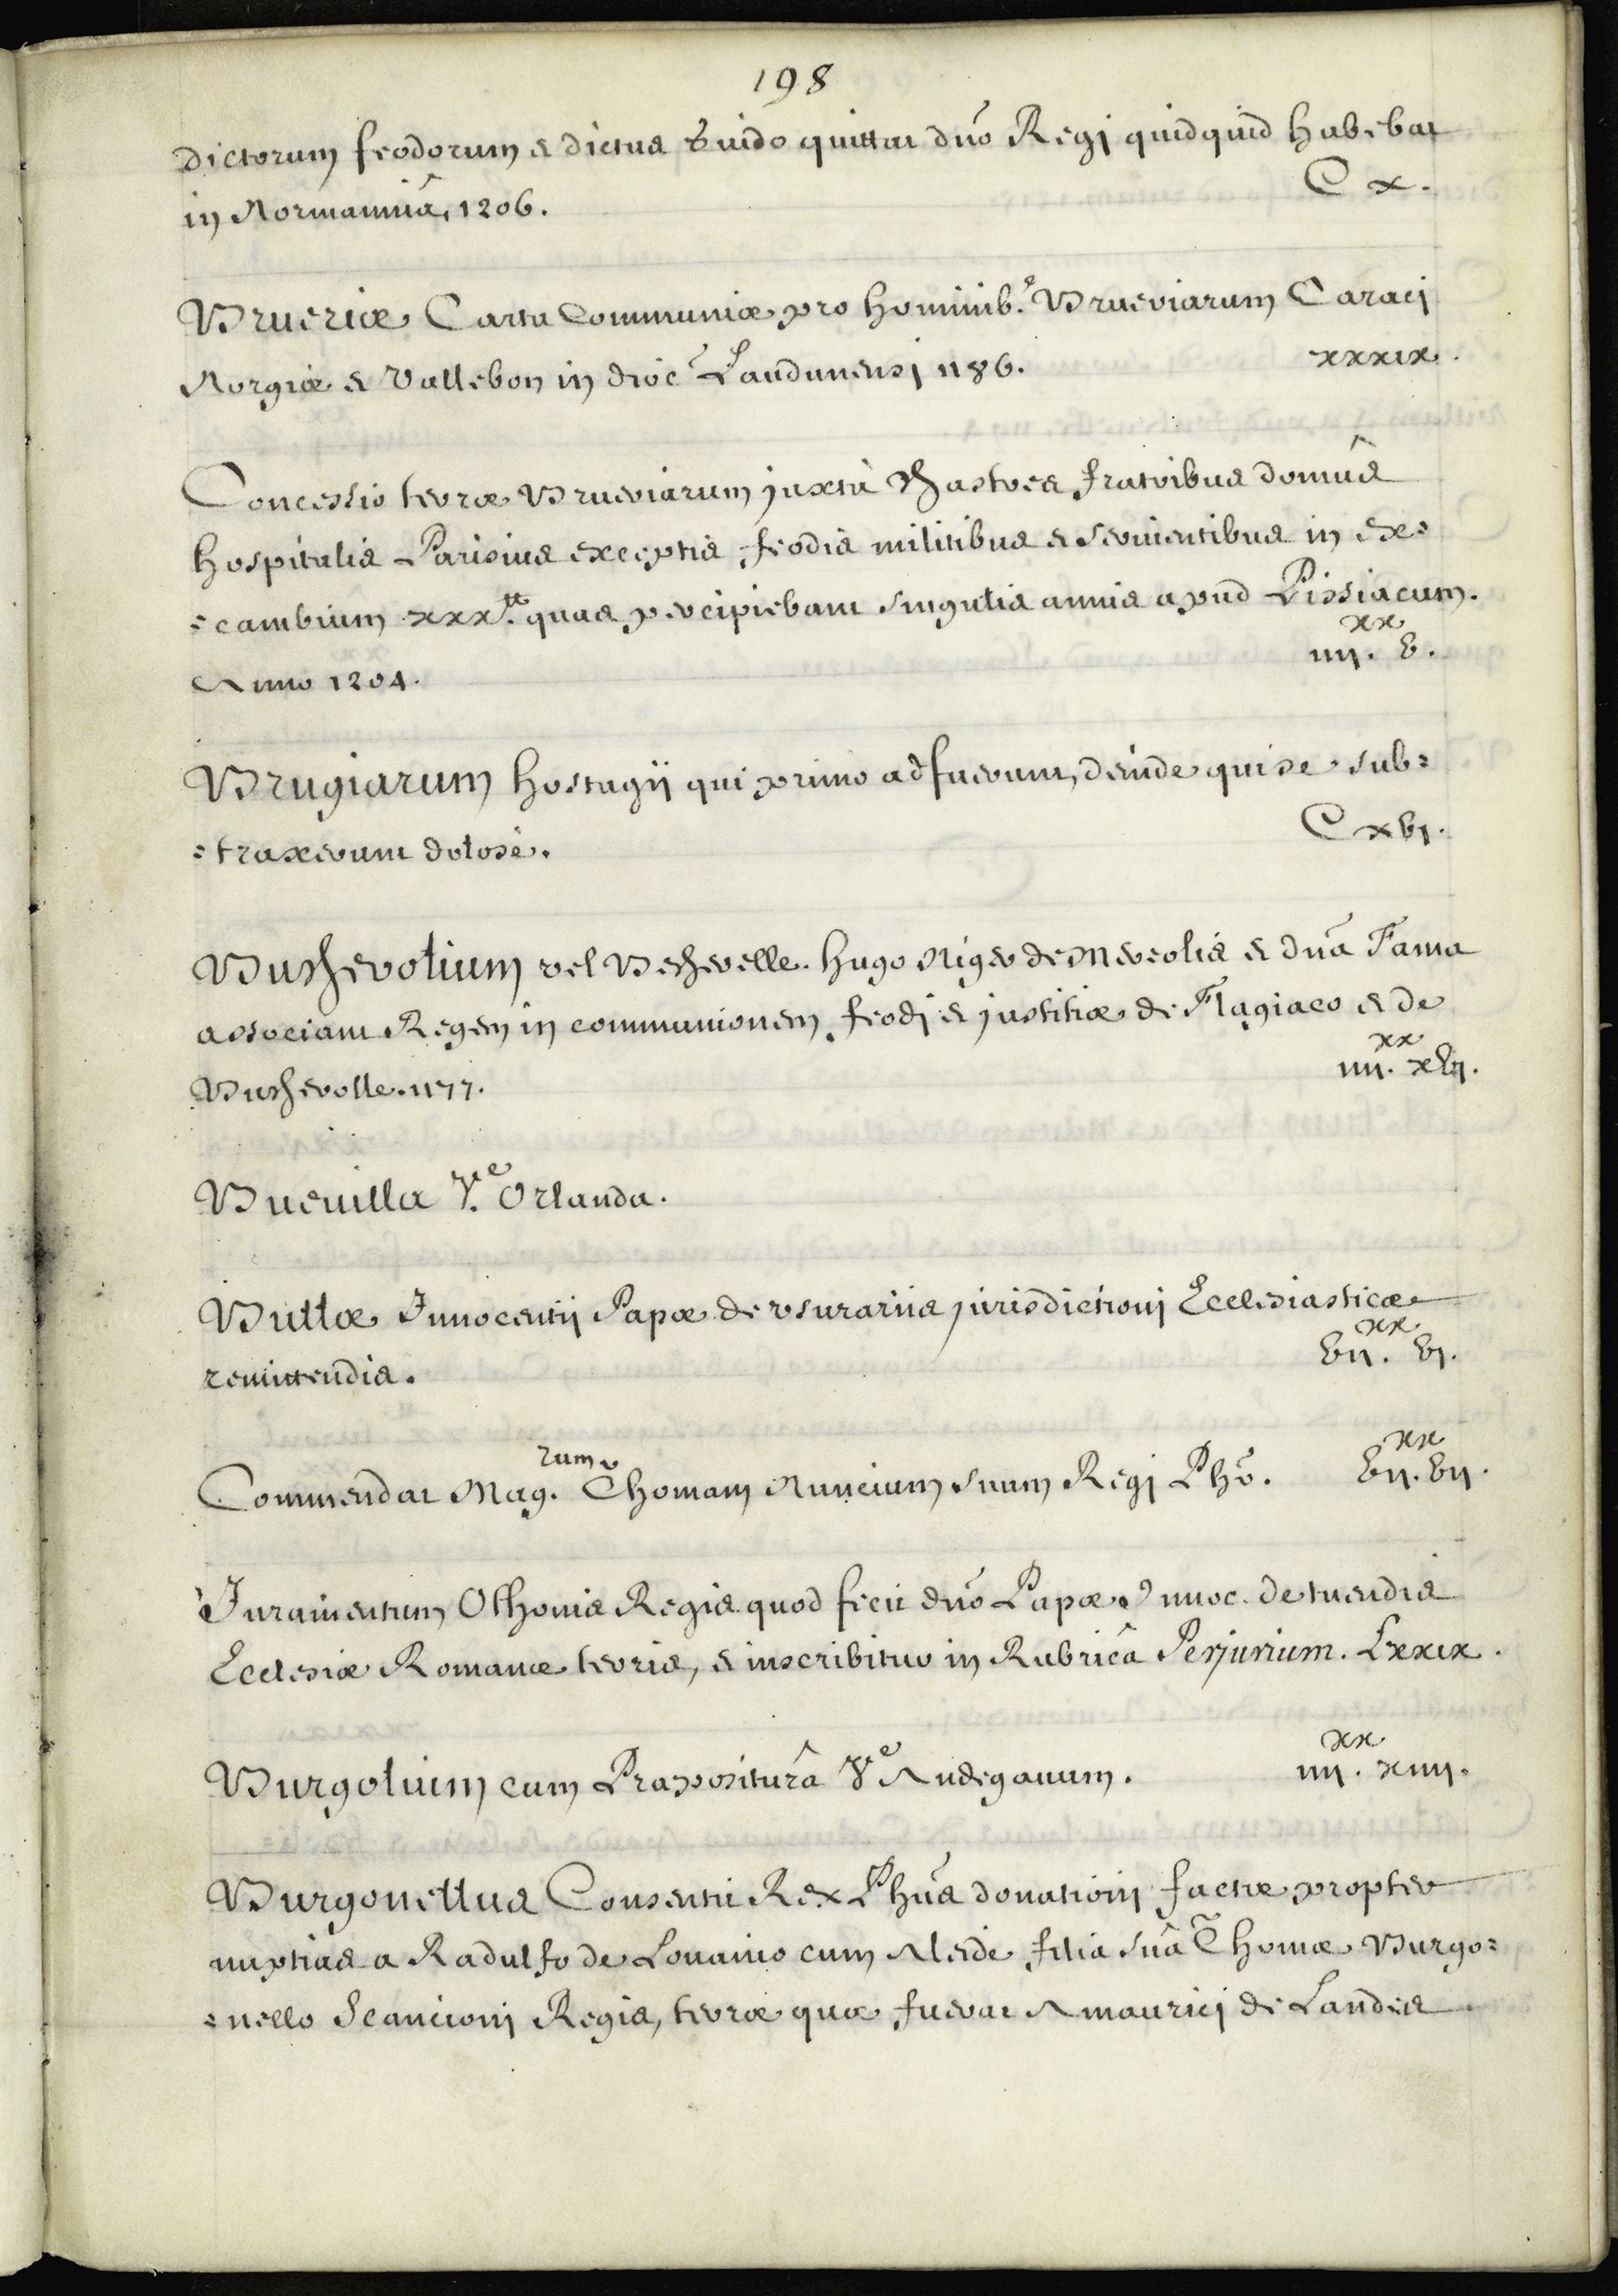 198
dictorum feodorum & dictus Guido quittat dnō Regi quidquid habebat
in Normanniâ, 1206. C x.
Brueriæ Carta Communiæ pro hominib.s Brueriarum Caraci
Norgiæ & Vallebon in dioc̃ Laudunensi 1186. xxxix.
Concessio terræ Brueriarum juxtà Chastres fratribus domûs
hospitalis Parisius exceptis feodis militibus & servientibus in ex=
=cambium xxx.tt quas percipiebant singulis annis apud Pissiacum.
Anno 1204. iiij.xx v.
Brugiarum hostagii qui primo adfuerunt, deinde qui se sub=
=traxerunt dolosè. C xvj.
Buschevolium vel Beschevelle. Hugo Niger de Merolis & dnā Fama
associant Regem in communionem feodi & justitiæ de Flagiaco & de
Buschevolle. 1177. iiij.xx xvij.
Buevilla V.e Orlanda.
Bullæ Innocentii Papæ de usurariis jurisdictioni Ecclesiasticæ
remittendis. vij.xx vj.
Commendat Mag.rum Thomam Nuncium suum Regi Phō. vij.xx vij.
Juramentum Othonis Regis quod fecit dnō Papæ Innoc. de tuendis
Ecclesiæ Romanæ terris, & inscribitur in Rubricâ Perjurium. Lxxix.
Burgolium cum Præpositurâ V.e Andegavum. iiij.xx xiiij.
Burgonellus Consentit Rex Phūs donationi factæ propter
nuptias a Radulfo de Lovanio cum Aleide filia suâ Thomæ Burgo=
=nello Scancioni Regis, terræ quæ fuerat Amaurici de Landes